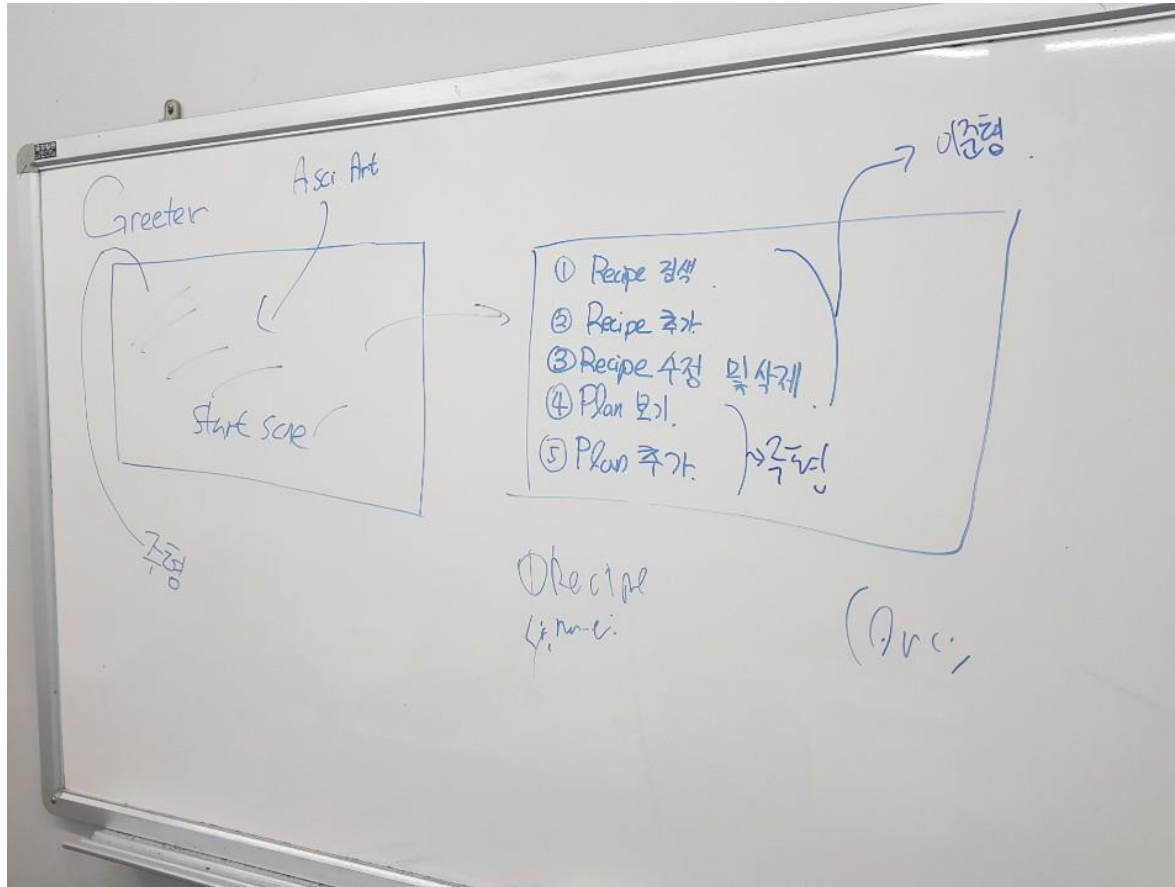 Greeter
Asci Art
start
주형
이준형
① Recipe 검색
② Recipe 추가
③ Recipe 수정 및 삭제
④ Plan 보기
⑤ Plan 추가
주형
① Recipe